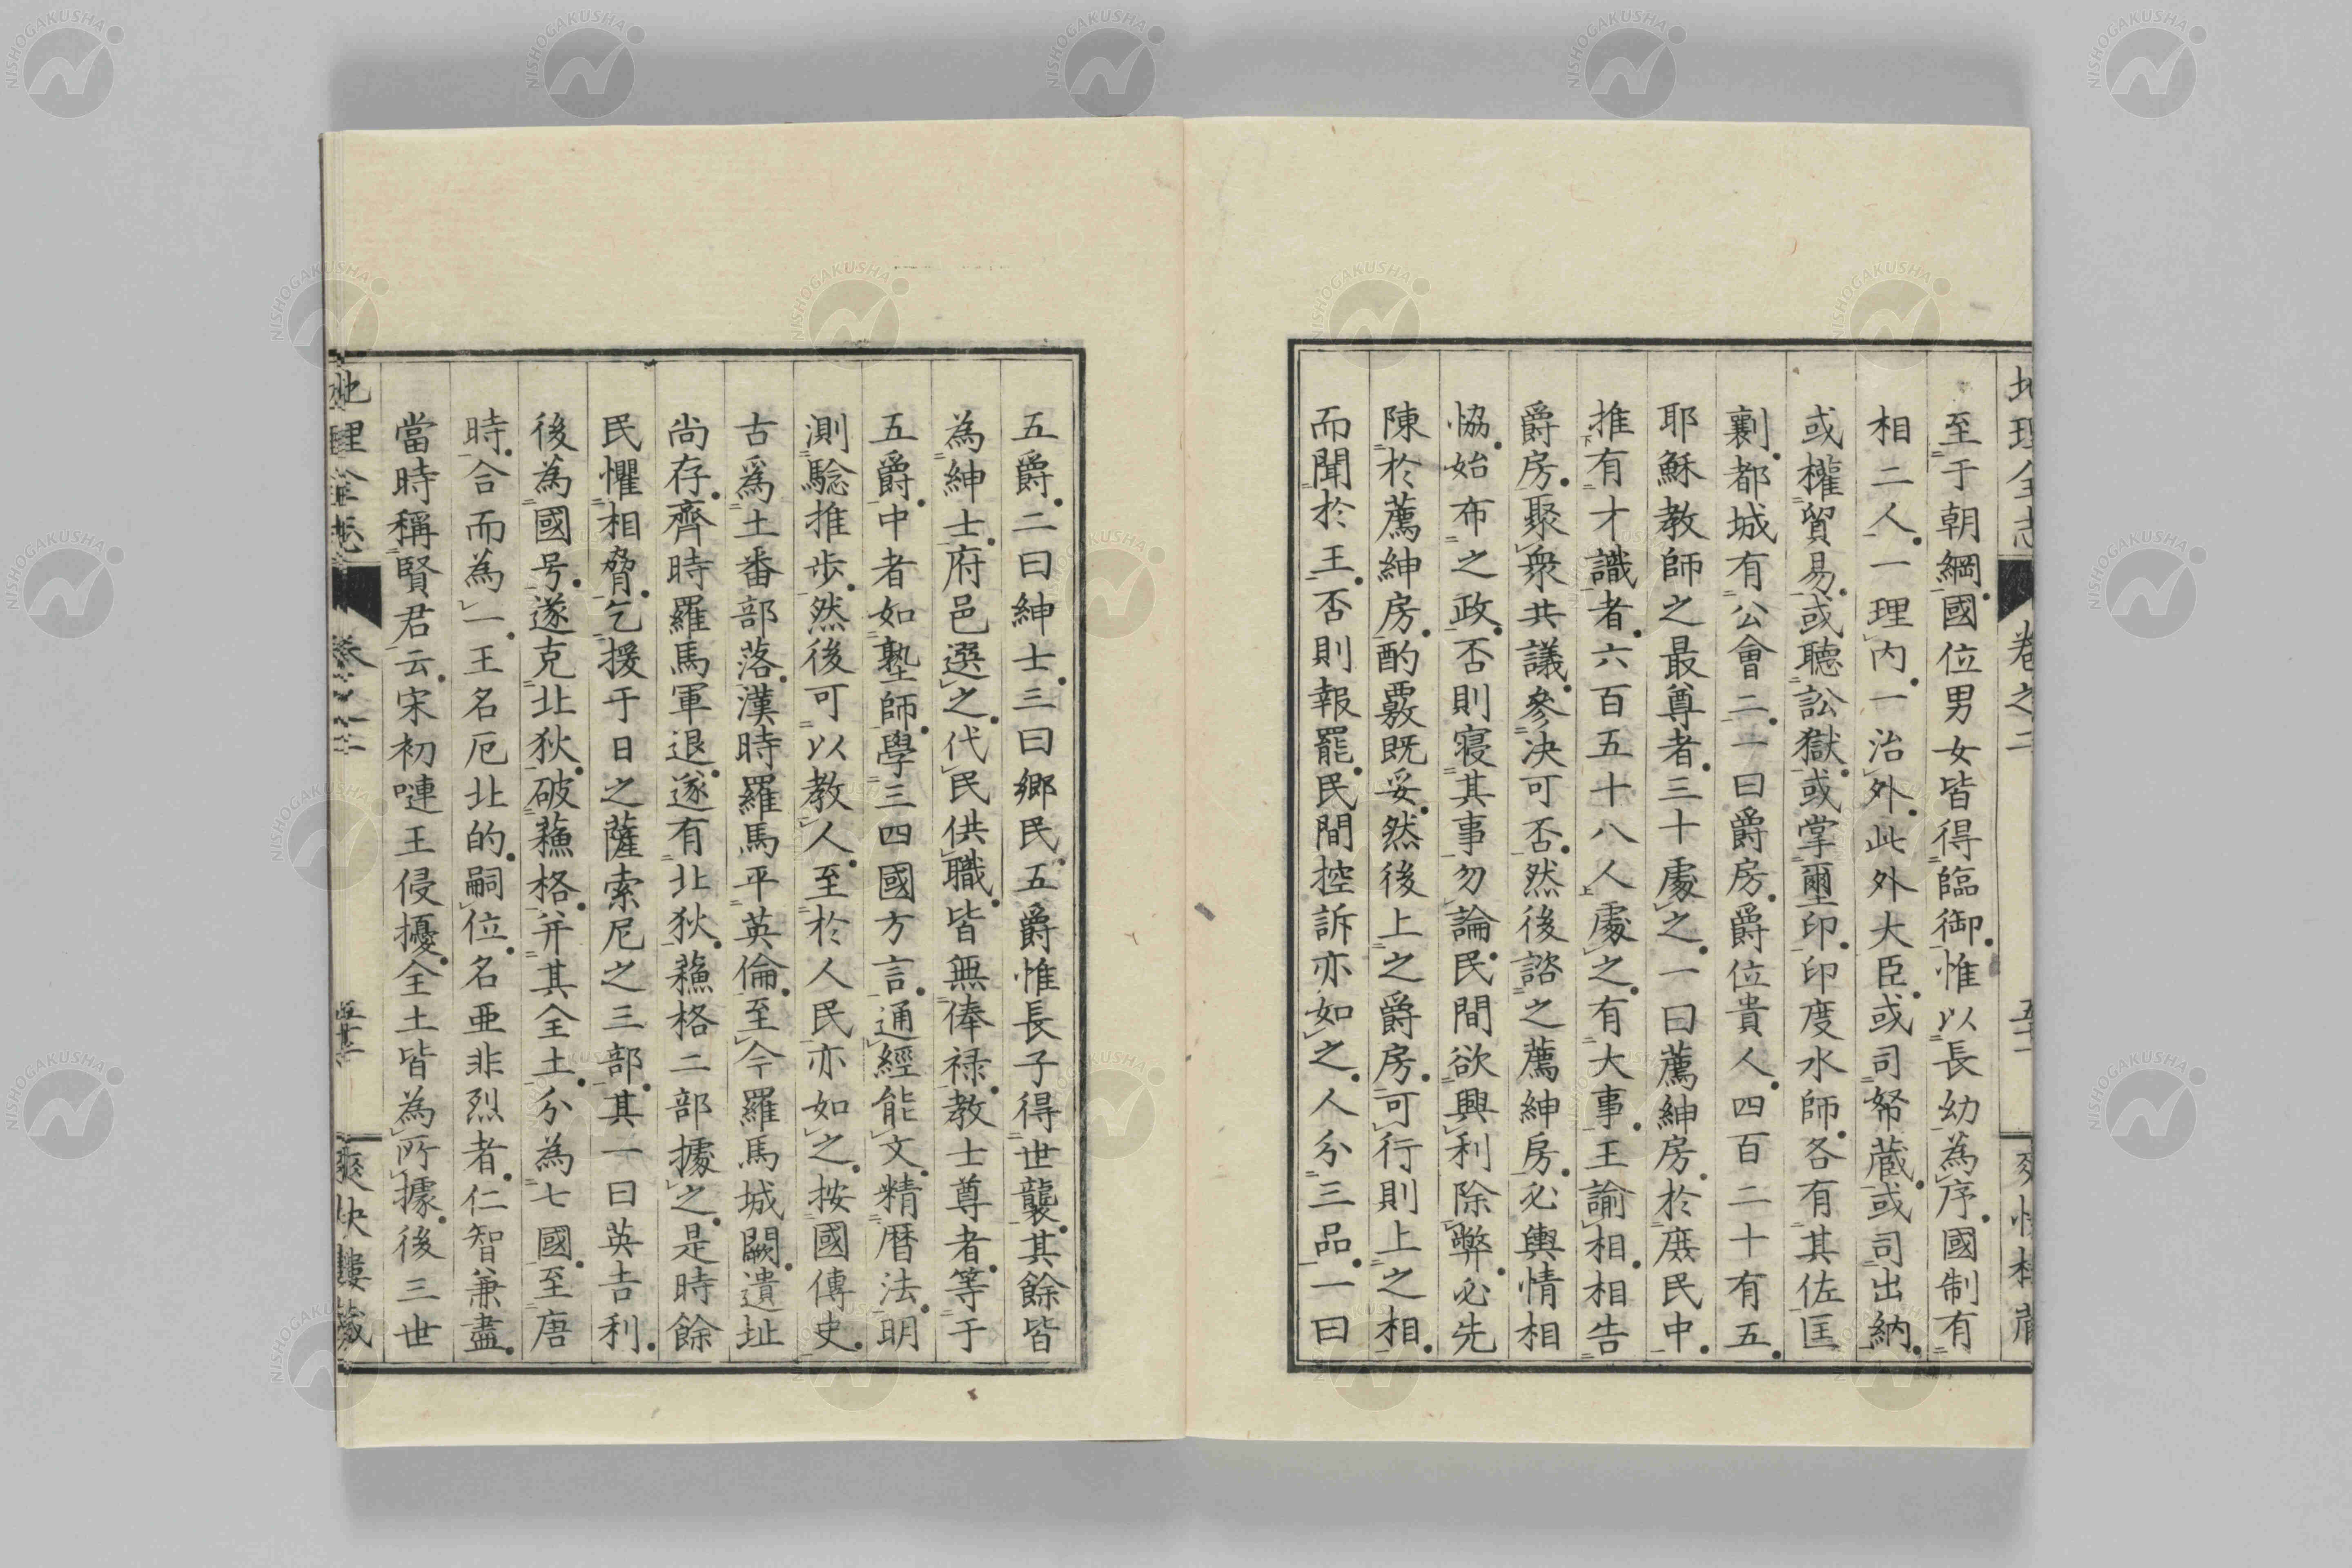 地理全志 卷之二 五十一 爽快樓藏
至于朝綱國位男女皆得臨御惟以長幼為序國制有
相二人一理內一治外此外大臣或司帑蔵或司出納
或權貿易或聽訟獄或掌壐印印度水師各有其佐匡
襄都城有公會二一曰爵房爵位貴人四百二十有五
耶穌教師之最尊者三十處之一曰薦紳房於庶民中
推有才識者六百五十八人處之有大事王諭相相告
爵房聚衆共議參決可否然後諮之薦紳房必輿情相
恊始布之政否則寝其事勿論民間欲興利除弊必先
陳於薦紳房酌覈既妥然後上之爵房可行則上之相
而聞於王否則報罷民間控訴亦如之人分三品一曰
五爵二曰紳士三曰鄉民五爵惟長子得世襲其餘皆
為紳士府邑選之代民供職皆無俸禄教士尊者等于
五爵中者如塾師學三四國方言通經能文精暦法明
測驗推步然後可以教人至於人民亦如之按國傳史
古爲土番部落漢時羅馬平英倫至今羅馬城闕遺址
尚存齊時羅馬軍退遂有北狄蘓格二部據之是時餘
民懼相脅乞援于日之薩索尼之三部其一曰英吉利
後為國号遂克北狄破蘓格并其全土分為七國至唐
時合而為一王名厄北的嗣位名亜非烈者仁智兼盡
當時稱賢君云宋初嗹王侵擾全土皆為所據後三世
地理全志 卷之二 五十二 爽快樓藏